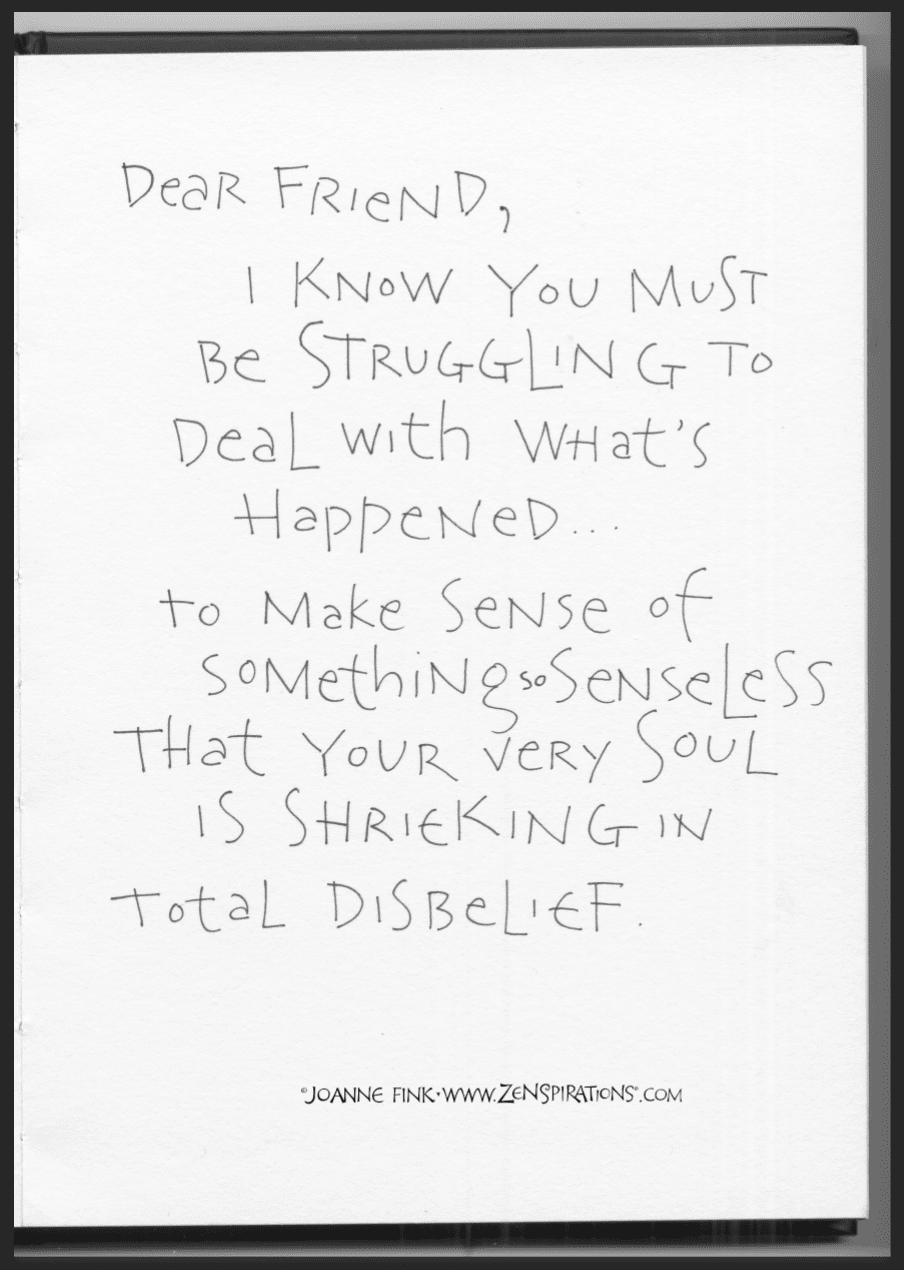 Dear Friend,
I know you must
be struggling to
deal with what's
happened...
to make sense of
something so senseless
that your very soul
is shrieking in
total disbelief.
©JOANNE FINK·WWW.ZENSPIRATIONS®.COM